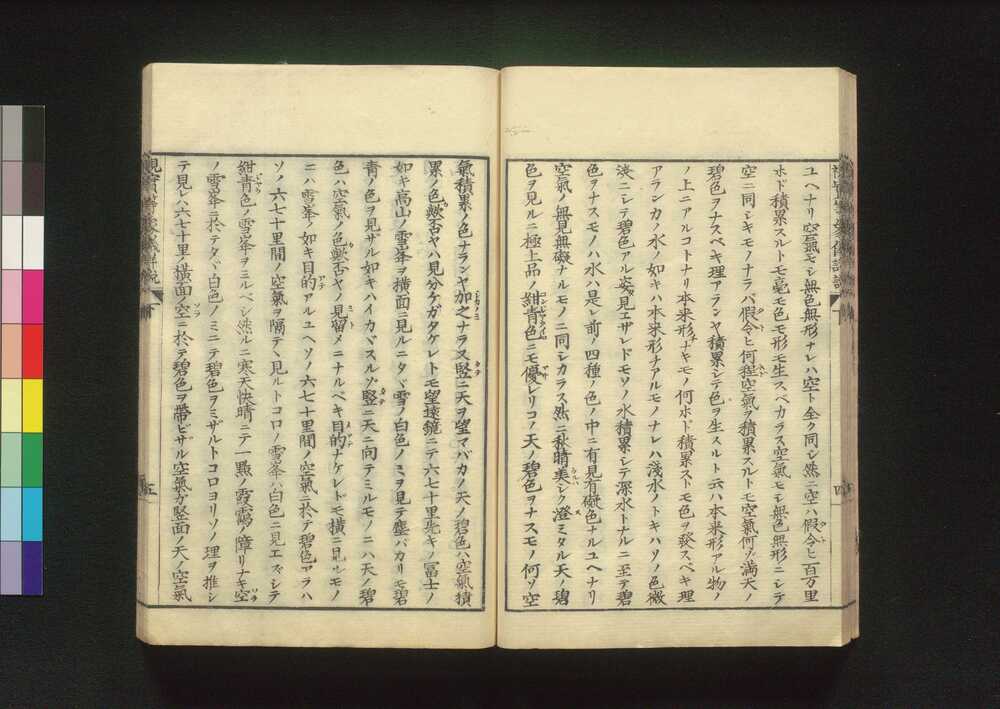 ユヘナリ空氣モシ無色無形ナレハ空ト全ク同シ然ニ空ハ假令ヒ百万里
ホド積累スルトモ毫モ色モ形モ生スベカラス空氣モシ無色無形ニシテ
空ニ同シキモノナラバ假令ヒ何程空氣ヲ積累スルトモ空氣何ゾ滿天ノ
碧色ヲナスベキ理アランヤ積累シテ色ヲ生スルト云ハ本来形アル物ノ
ノ上ニアルコトナリ本来形ナキモノ何ホド積累ストモ色ヲ發スベキ理
アランカノ水ノ如キハ本来形チアルモノナレハ淺水ノトキハソノ色微
淡ニシテ碧色アル姿見エザレドモソノ水積累シテ深水トナルニ至テ碧
色ヲナスモノハ水ハ是レ前ノ四種ノ色ノ中ニ有見有礙色ナルユヘナリ
空氣ノ無見無礙ナルモノニ同シカラス然ニ秋晴美シク澄ミタル天ノ碧
色ヲ見ルニ極上品ノ紺青色ニモ優レリコノ天ノ碧色ヲナスモノ何ソ空
四
氣積累ノ色ナランヤ加之ナラス竪ニ天ヲ望マバカノ天ノ碧色ハ空氣積
累ノ色歟否ヤハ見分ケガタケレトモ望遠鏡ニテ六七十里先キノ冨士ノ
如キ高山ノ雪峯ヲ横面ニ見ルニタヾ雪ノ白色ノミヲ見テ塵バカリモ碧
青ノ色ヲ見ザル如キハイカヾスルゾ竪ニ天ニ向テミルモノニハ天ノ碧
色ハ空氣ノ色歟否ヤノ見留メニナルベキ目的ナケレトモ横ニ見ルモノ
ニハ雪峯ノ如キ目的アルユヘソノ六七十里間ノ空氣ニ於テ碧色アラハ
ソノ六七十里間ノ空氣ヲ隔テヽ見ルトコロノ雪峯ハ白色ニ見エズシテ
紺青色ノ雪峯ヲミルベシ然ルニ寒天快晴ニテ一點ノ霞靄ノ障リナキ空
ノ雪峯ニ於テタヾ白色ノミニテ碧色ヲミザルトコロヨリソノ理ヲ推シ
テ見レハ六七十里ノ横面ノ空ニ於テ碧色ヲ帶ビザル空氣カ竪面ノ天ノ空氣
五